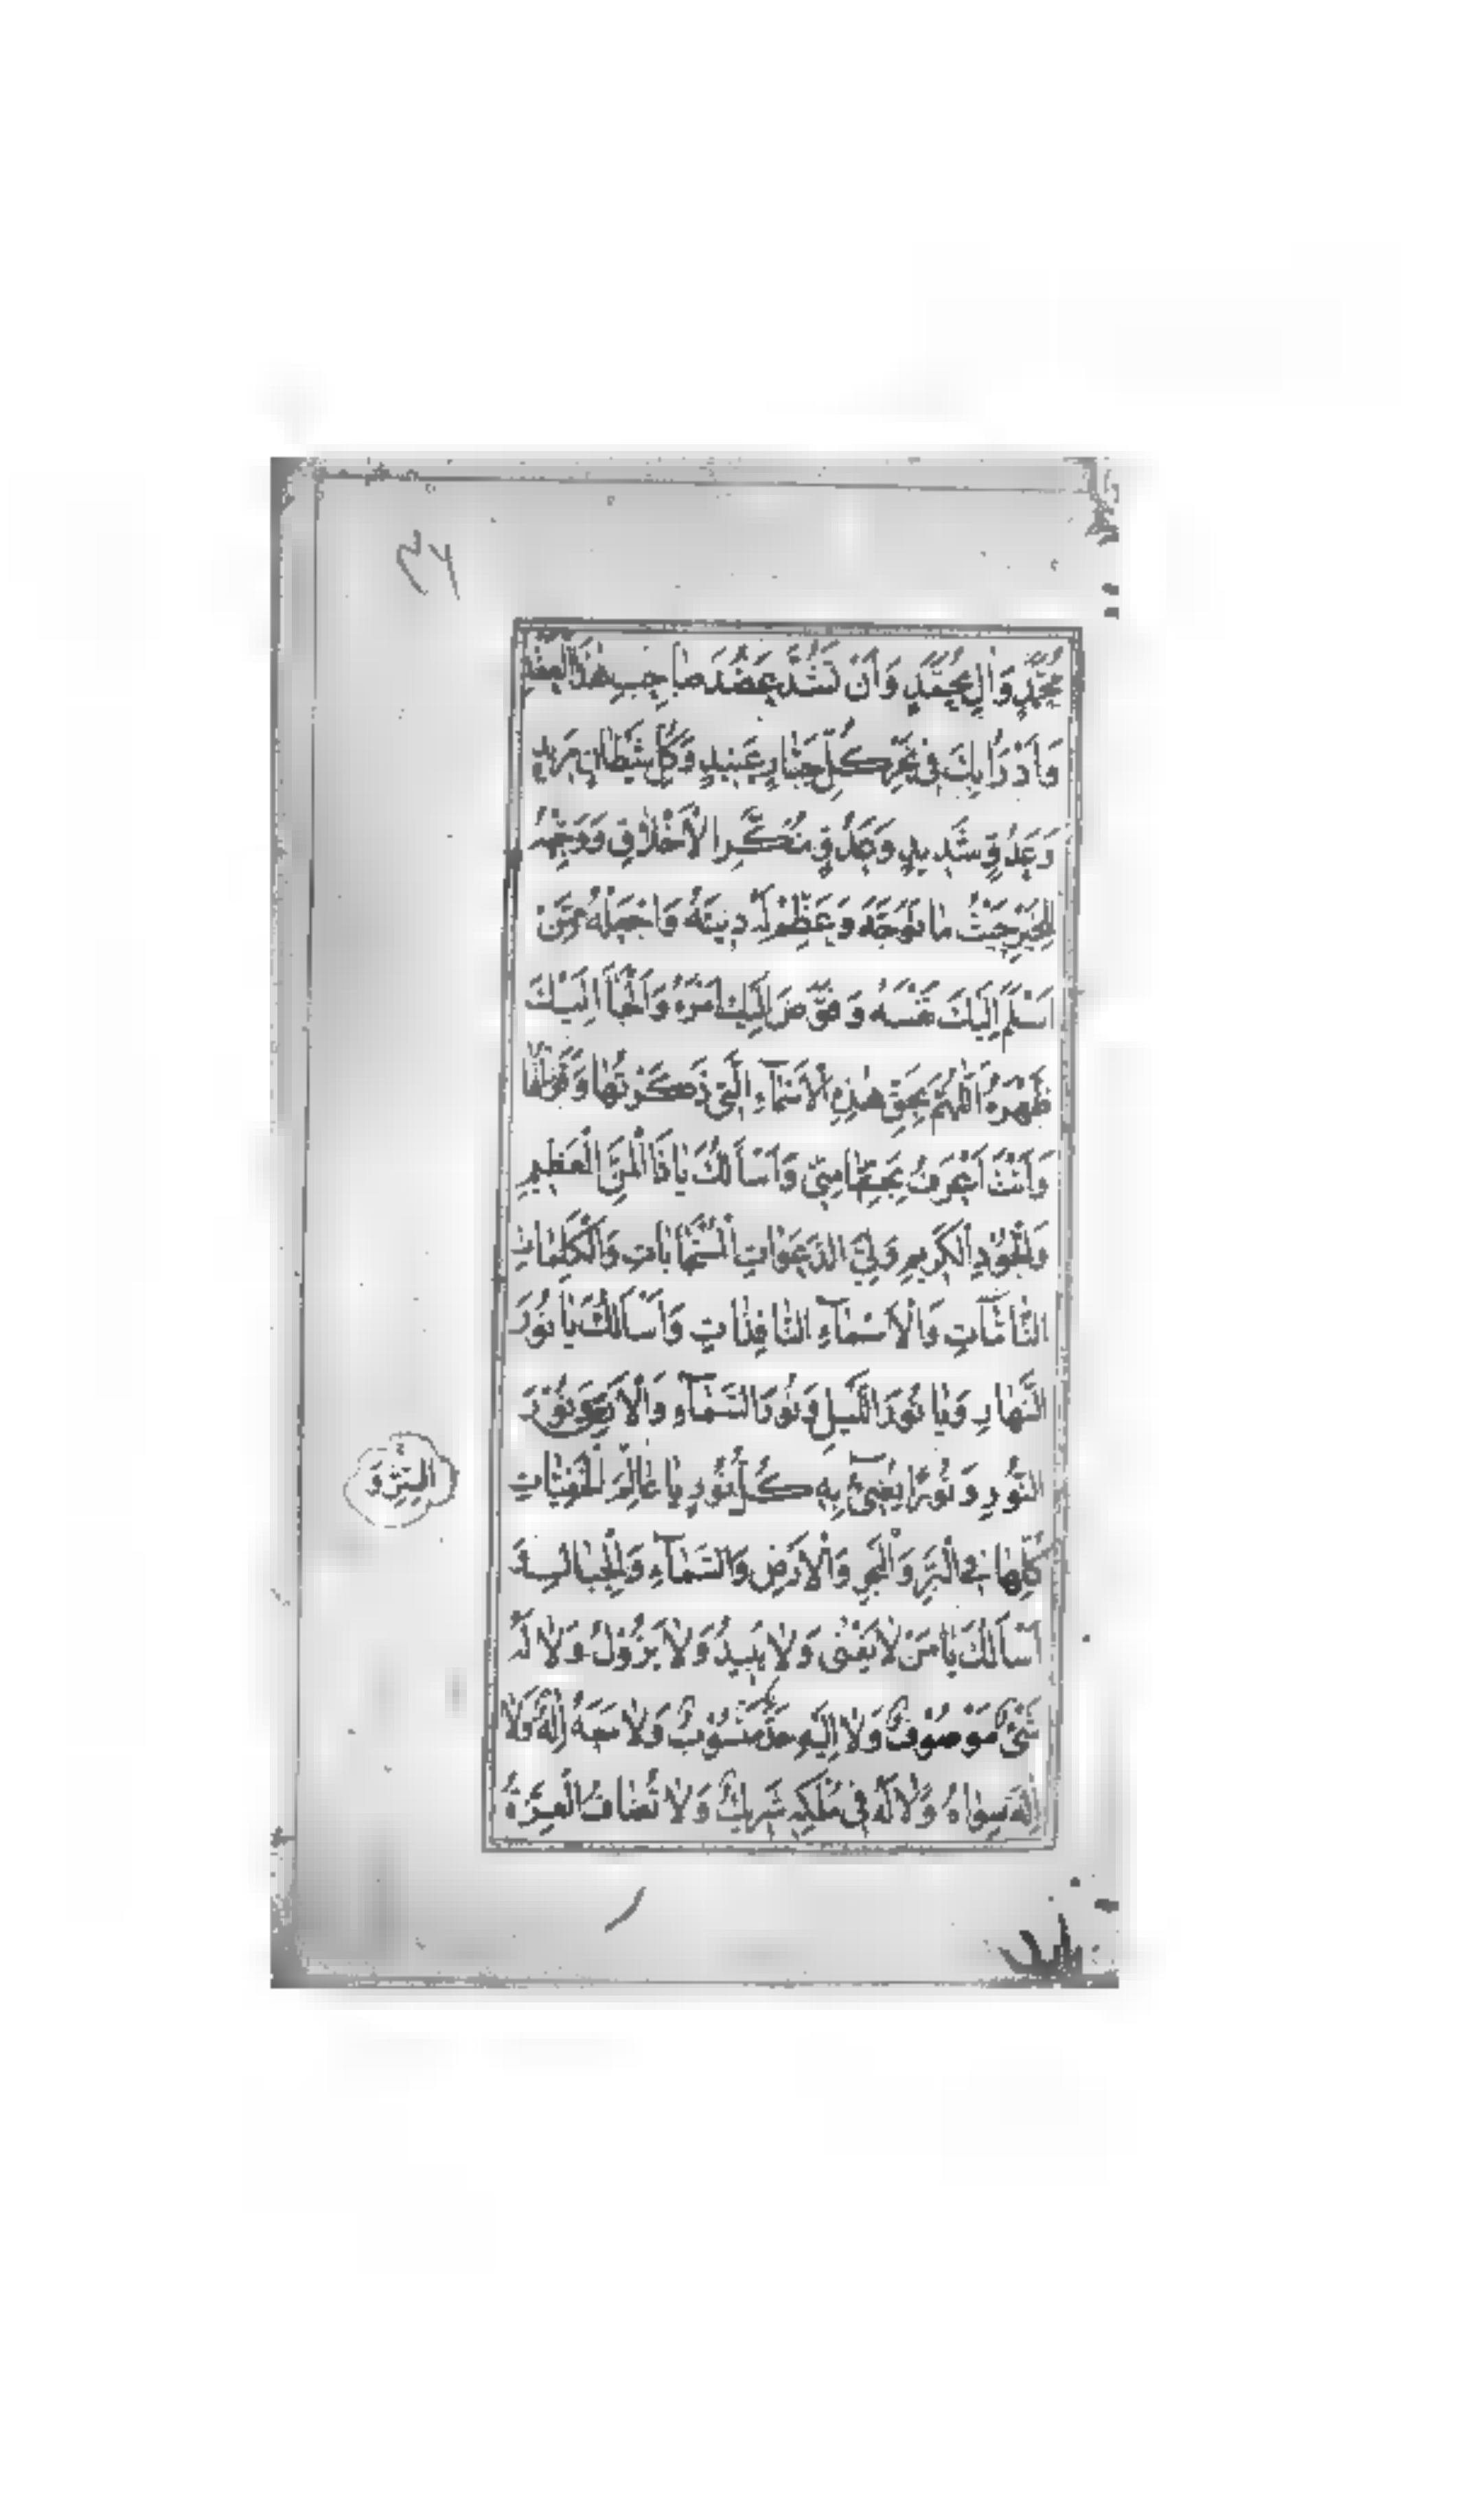 ٢٦
مُحَمَّدٍ وَآلِ مُحَمَّدٍ وَاَنْ تَشُدَّ عَضُدَ صاحِبِ هٰذَا الْعَقْدِ
وَاَدْرَأُ بِكَ فى نَحْرِ كُلِّ جَبّارٍ عَنيدٍ وَكُلِّ شَيْطانٍ مَريدٍ
وَعَدُوٍّ شَديدٍ وَعَدُوٍّ مُنْكَرِ الْاَخْلاقِ وَوَجِّهْهُ
لِلْخَيْرِ حَيْثُ ما تَوَجَّهَ وَعَظِّمْ لَهُ دينَهُ وَاجْعَلْهُ مِمَّنْ
اَسْلَمَ اِلَيْكَ نَفْسَهُ وَفَوَّضَ اِلَيْكَ اَمْرَهُ وَاَلْجَأَ اِلَيْكَ
ظَهْرَهُ اَللّٰهُمَّ بِحَقِّ هٰذِهِ الْاَسْمآءِ الَّتى ذَكَرْتُها وَقَرَأْتُها
وَاَنْتَ اَعْرَفُ بِحَقِّها مِنّى وَاَسْاَلُكَ يا ذَا الْمَنِّ الْعَظيمِ
وَالْجُودِ الْكَريمِ وَلِىَّ الدَّعَواتِ الْمُسْتَجاباتِ وَالْكَلِماتِ
التّآمّاتِ وَالْاَسْمآءِ النّافِذاتِ وَاَسْاَلُكَ يا نُورَ
النَّهارِ وَيا نُورَ اللَّيْلِ وَنُورَ السَّمآءِ وَالْاَرْضِ وَنُورَ
النُّورِ وَنُورًا يُضىءُ بِهِ كُلُّ نُورٍ يا عالِمَ الْخَفِيّاتِ
كُلِّها فِى الْبَرِّ وَالْبَحْرِ وَالْاَرْضِ وَالسَّمآءِ وَالْجِبالِ وَ
اَسْاَلُكَ يا مَنْ لا يَفْنى وَلا يَبيدُ وَلا يَزُولُ وَلا لَهُ
شَىْءٌ مَوْصُوفٌ وَلا اِلَيْهِ حَدٌّ مَنْسُوبٌ وَلا مَعَهُ اِلٰهٌ وَلا
اِلٰهَ سِواهُ وَلا لَهُ فى مُلْكِهِ شَريكٌ وَلا تُضافُ الْعِزَّةُ